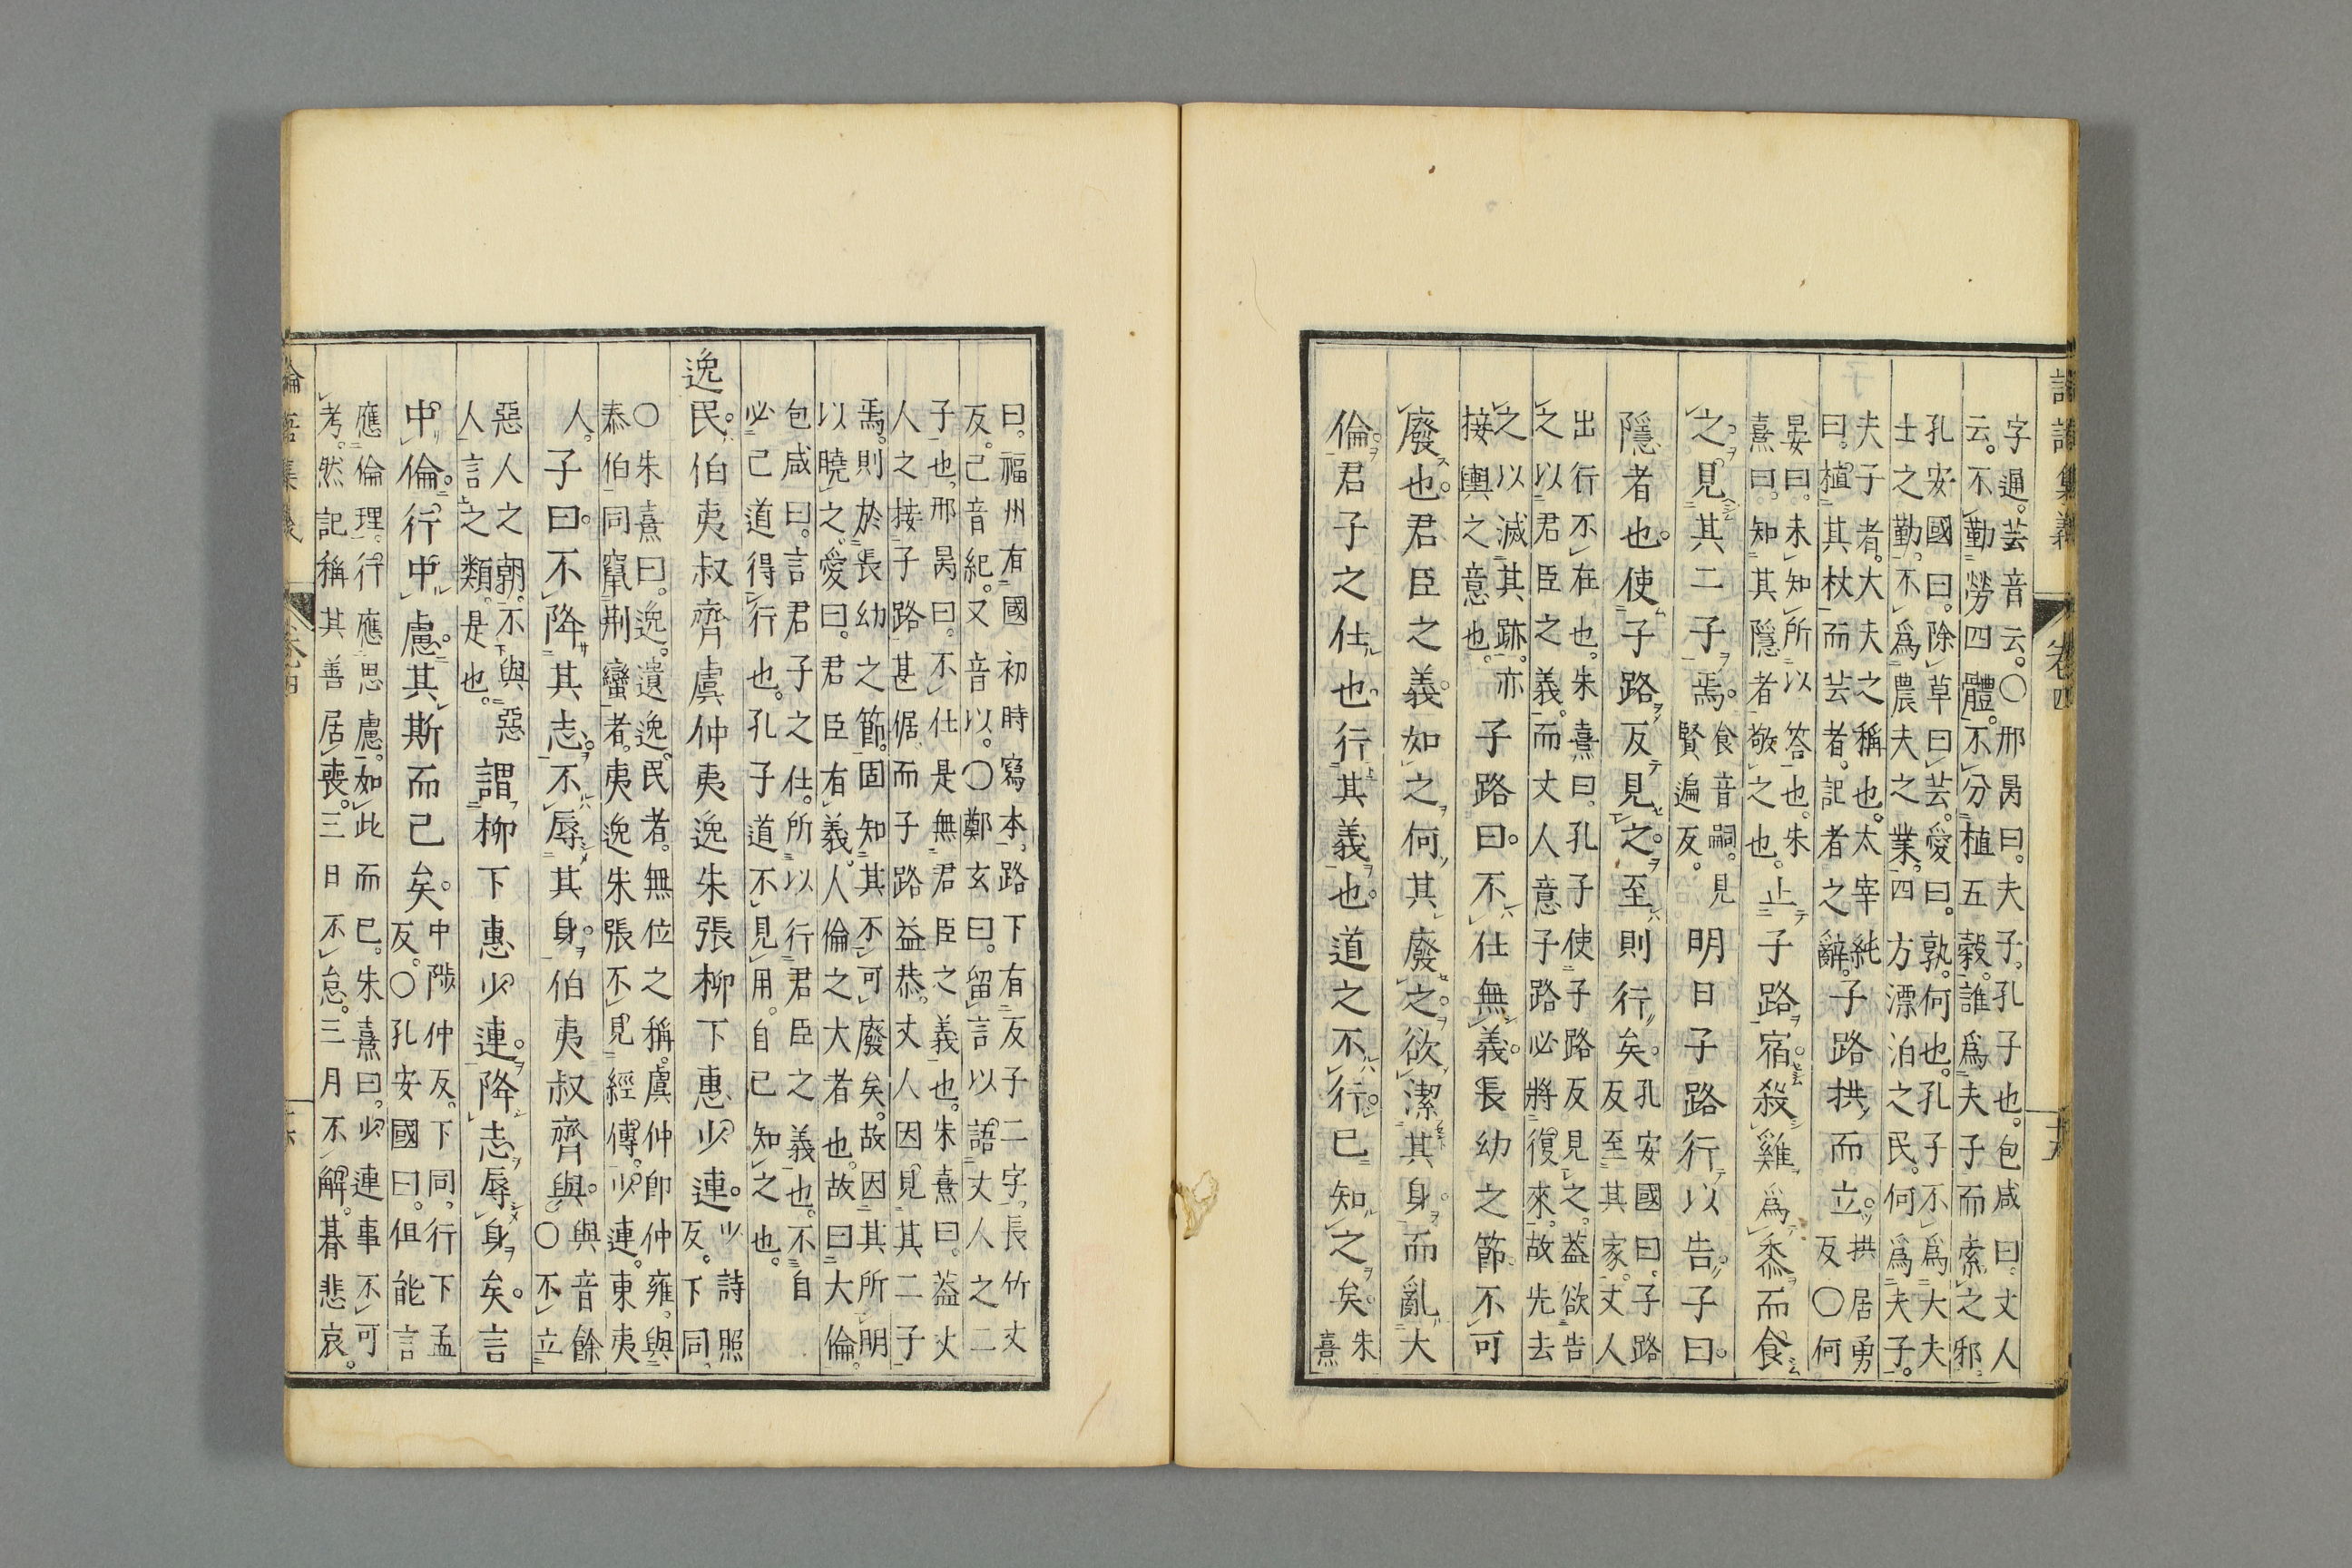 論語集義 卷四
字通。芸音云。〇邢昺曰。夫子。孔子也。包咸曰。丈人
云。不勤勞四體。不分植五穀。誰爲夫子而索之邪。
孔安國曰。除草曰芸。愛曰。孰。何也。孔子不爲大夫
士之勤。不爲農夫之業。四方漂泊之民。何爲夫子。
夫子者。大夫之稱也。太宰純
曰。植其杖而芸者。記者之辭。
子路拱而立。
拱居勇
反〇何
晏曰。未知所以答也。朱
熹曰。知其隱者敬之也。
止子路宿。殺雞爲黍而食
之。見其二子焉。
食音嗣。見
賢遍反。
明日子路行以告。子曰。
隱者也。使子路反見之。至則行矣。
孔安國曰。子路
反至其家。丈人
出行不在也。朱熹曰。孔子使子路反見之。蓋欲告
之以君臣之義。而丈人意子路必將復來。故先去
之以滅其跡。亦
接輿之意也。
子路曰。不仕無義。長幼之節。不可
廢也。君臣之義。如之何其廢之。欲潔其身。而亂大
倫。君子之仕也。行其義也。道之不行。已知之矣。
朱
熹
曰。福州有國初時寫本。路下有反子二字。長竹丈
反。己音紀。又音以。〇鄭玄曰。留言以語丈人之二
子也。邢昺曰。不仕是無君臣之義也。朱熹曰。蓋丈
人之接子路甚倨。而子路益恭。丈人因見其二子
焉。則於長幼之節。固知其不可廢矣。故因其所明
以曉之。愛曰。君臣有義。人倫之大者也。故曰大倫。
包咸曰。言君子之仕。所以行君臣之義也。不自
必己道得行也。孔子道不見用。自己知之也。
逸民。伯夷叔齊虞仲夷逸朱張柳下惠少連。
少詩照
反。下同。
〇朱熹曰。逸。遺逸。民者。無位之稱。虞仲卽仲雍。與
泰伯同竄荆蠻者。夷逸朱張不見經傳。少連。東夷
人。
子曰。不降其志。不辱其身。伯夷叔齊與。
與音餘
〇不立
惡人之朝。不與惡
人言之類。是也。
謂柳下惠少連。降志辱身矣。言
中倫。行中慮。其斯而已矣。
中陟仲反。下同。行下孟
反。〇孔安國曰。但能言
應倫理。行應思慮。如此而已。朱熹曰。少連事不可
考。然記稱其善居喪。三日不怠。三月不解。朞悲哀。
論語集義 卷四